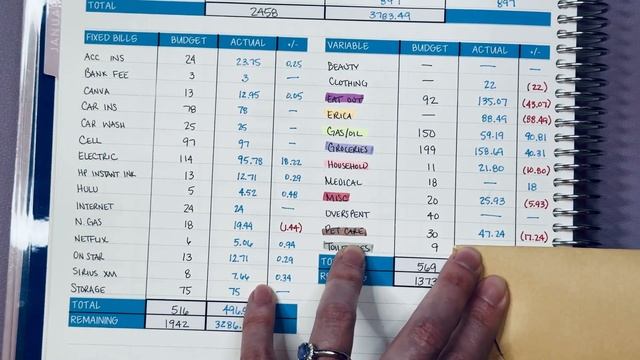 TOTAL 2458 897 3783.49 897
JANUAR
FIXED BILLS BUDGET ACTUAL +/-
ACC INS 24 23.75 0.25
BANK FEE 3 3 —
CANVA 13 12.95 0.05
CAR INS 78 78 —
CAR WASH 25 25 —
CELL 97 97 —
ELECTRIC 114 95.78 18.22
HP INSTANT INK 13 12.71 0.29
HULU 5 4.52 0.48
INTERNET 24 24 —
N. GAS 18 19.44 (1.44)
NETFLIX 6 5.06 0.94
ON STAR 13 12.71 0.29
SIRIUS XM 8 7.66 0.34
STORAGE 75 75 —
TOTAL 516 496.
REMAINING 1942 3286.
VARIABLE BUDGET ACTUAL +/-
BEAUTY — — —
CLOTHING — 22 (22)
EAT OUT 92 135.07 (43.07)
ERICA — 88.49 (88.49)
GAS/OIL 150 59.19 90.81
GROCERIES 199 158.69 40.31
HOUSEHOLD 11 21.80 (10.80)
MEDICAL 18 — 18
MISC 20 25.93 (5.93)
OVERSPENT 40 — —
PET CARE 30 47.24 (17.24)
9
TO 569
R 1373